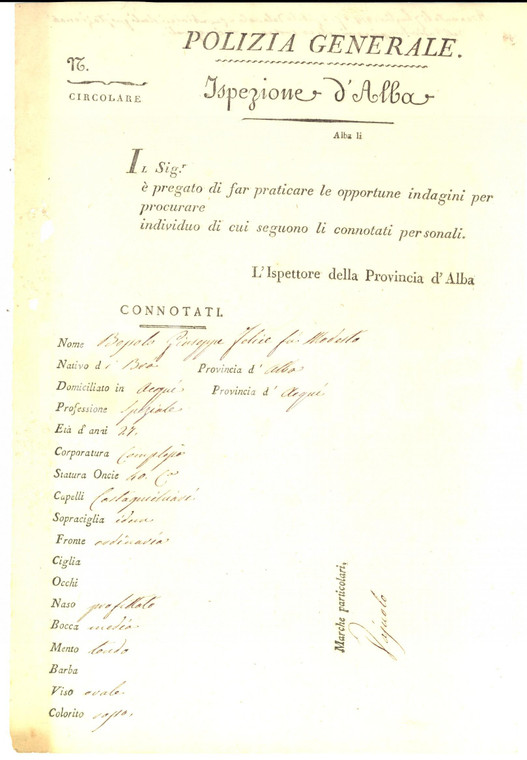 POLIZIA GENERALE.
N.
CIRCOLARE
Ispezione d'Alba
Alba li
IL Sig.r
è pregato di far praticare le opportune indagini per
procurare
individuo di cui seguono li connotati personali.
L'Ispettore della Provincia d'Alba
CONNOTATI.
Nome Giuseppe Felice fu Modesto
Nativo di Brà Provincia d' Alba
Domiciliato in Acqui Provincia d' Acqui
Professione speziale
Età d'anni 27.
Corporatura complesso
Statura Oncie 40.
Capelli
Sopraciglia idem
Fronte ordinaria
Ciglia
Occhi
Naso profillato
Bocca media
Mento tondo
Barba
Viso ovale
Colorito rosso
Marche particolari,
Vajuolo